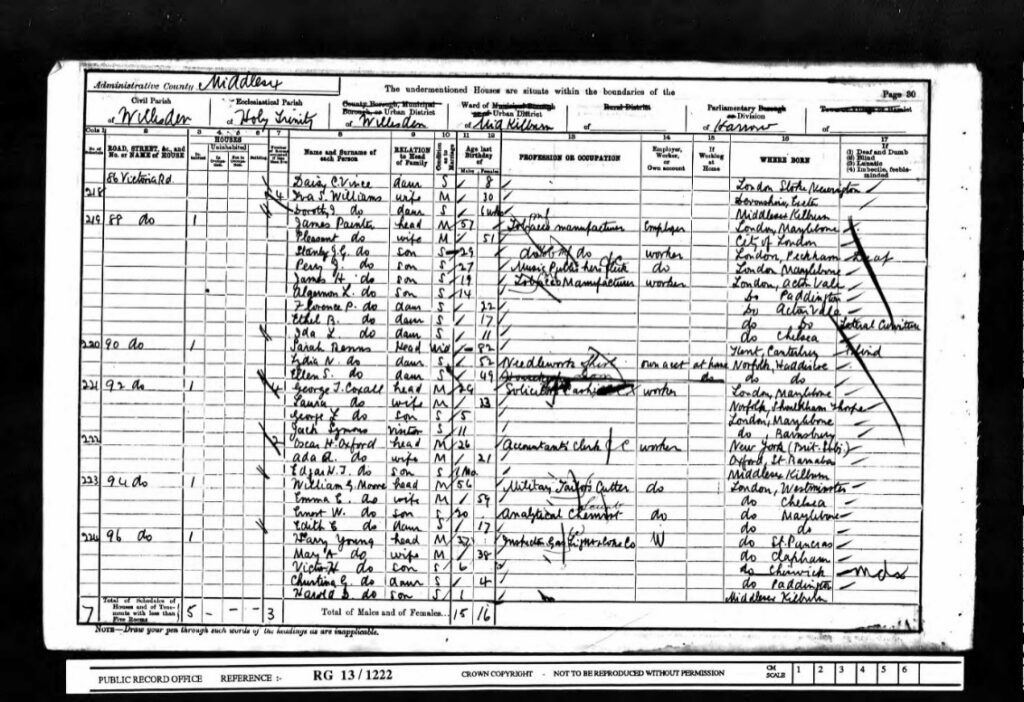 Administrative County Middlesex
The undermentioned Houses are situate within the boundaries of the
Page 30
Civil Parish of Willesden
Ecclesiastical Parish of Holy Trinity
County Borough, Municipal Borough or Urban District of Willesden
Ward of Municipal Borough or Urban District of Mid Kilburn
Rural District of
Parliamentary Borough or Division of Harrow
Town or Village or Hamlet of
Cols 1 2 3 4 5 6 7 8 9 10 11 12 13 14 15 16 17
ROAD, STREET, &c., and No. or NAME of HOUSE HOUSES Uninhabited Name and Surname of each Person RELATION to Head of Family Condition as to Marriage Age last Birthday of Males Females PROFESSION OR OCCUPATION Employer, Worker, or Own account If Working at Home WHERE BORN (1) Deaf and Dumb (2) Blind (3) Lunatic (4) Imbecile, feeble-minded
86 Victoria Rd. Daisy C. Vince daur S 8 London Stoke Newington
218 4 S. Williams wife M 30 Devonshire,
Dorothy do daur S Middlesex Kilburn
219 88 do 1 James Painter head M 57 Tobacco manufacturer Employer London, Marylebone
Pleasant do wife M 51 City of London
Stanley J.G. do son S 29 do do worker London, Peckham Deaf
Percy do son S 27 Music Publishers Clerk do London Marylebone
James H. do son S 19 Tobacco Manufacturer worker London, Acton Vale
Algernon L. do son S 14 Do Paddington
Florence P. do daur S 22 Do Acton Vale
Ethel B. do daur S 17 do Do Lateral Curvature
Ida L. do daur S 11 do Chelsea
220 90 do 1 Sarah Head Wid 82 Kent, Canterbury Blind
Lydia N. do daur S 52 Needlework own acct at home Norfolk,
Ellen S. do daur S 49 do do do
221 92 do 1 4 George T. Coxall head M 29 Solicitors worker London, Marylebone
Laura do wife M Norfolk, Thorpe
George L. do son S 5 London, Marylebone
Jack Symons visitor S 11 do Barnsbury
222 2 Oscar H. Oxford head M 26 Accountants Clerk worker New York (Brit. Subj.)
Ada A. do wife M 21 Oxford, St Barnabas
Edgar N.J. do son S 1 Mo. Middlesex Kilburn
223 94 do 1 William G. Moore head M 56 Military Tailors Cutter do London, Westminster
Emma E. do wife M 59 do Chelsea
Ernest W. do son S 20 Analytical Chemist do do Marylebone
Edith E. do daur S 17 do do
224 96 do 1 Harry Young head M 37 Inspector Gas Light & Coke Co W do St. Pancras
Mary A. do wife M 38 do Clapham
Victor H. do son S 6 do Chiswick Mdx
Christina G. do daur S 4 do Paddington
Harold D. do son S 1 Middlesex Kilburn
7 Total of Schedules of Houses and of Tenements with less than Five Rooms 5 - - - 3 Total of Males and of Females 15 16
NOTE—Draw your pen through such words of the headings as are inapplicable.
PUBLIC RECORD OFFICE REFERENCE :- RG 13/1222 CROWN COPYRIGHT - NOT TO BE REPRODUCED WITHOUT PERMISSION CM SCALE 1 2 3 4 5 6